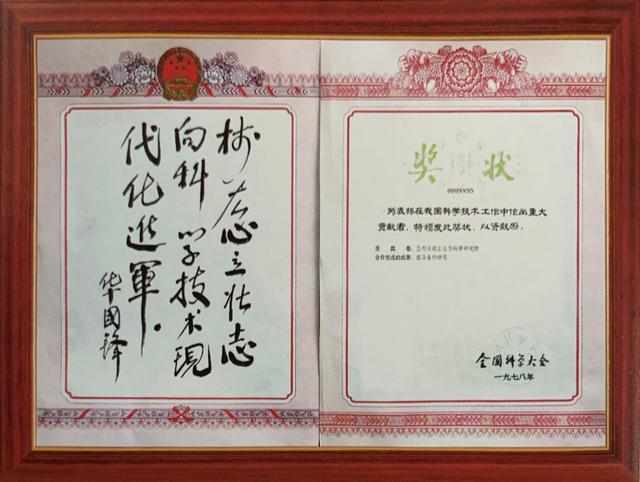 树雄心立壮志
向科学技术现
代化進軍。
华國锋
奖状
为表扬在我国科学技术工作中作出重大
贡献者，特颁发此奖状，以资鼓励。
合作完成的成果：
全国科学大会
一九七八年